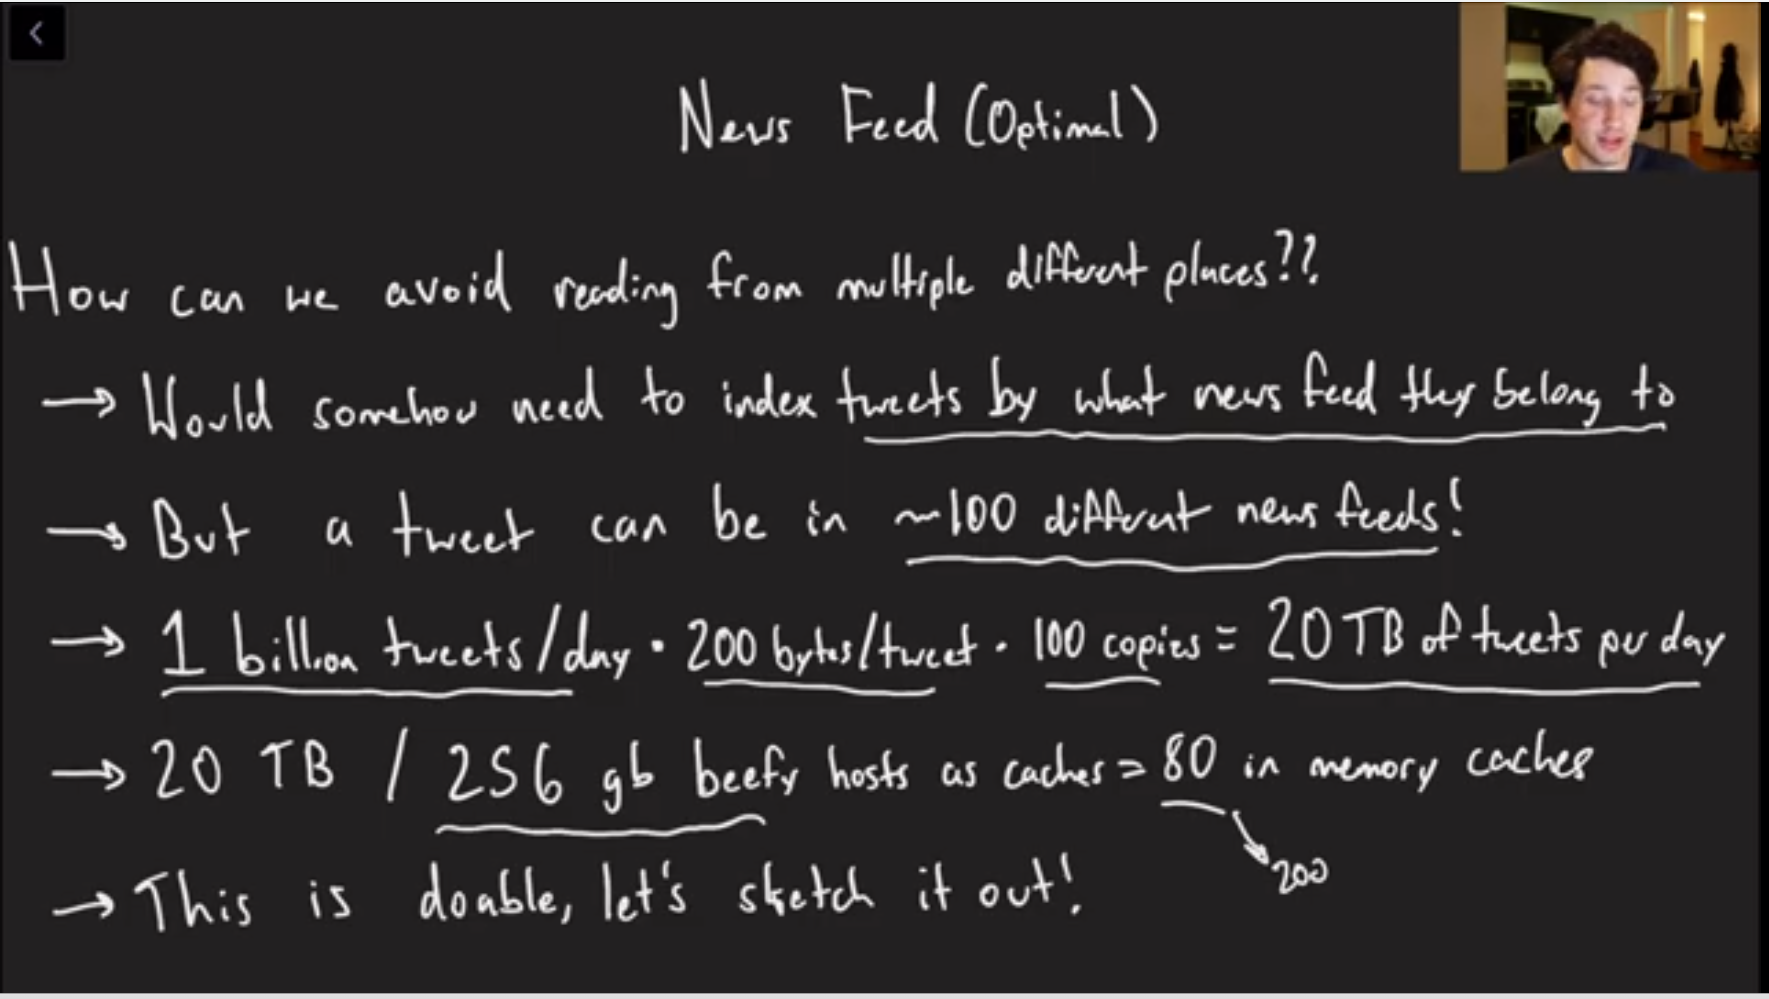 News Feed (Optimal)
How can we avoid reading from multiple different places??
→ Would somehow need to index tweets by what news feed they belong to
→ But a tweet can be in ~100 different news feeds!
→ 1 billion tweets/day · 200 bytes/tweet · 100 copies = 20 TB of tweets per day
→ 20 TB / 256 gb beefy hosts as caches = 80 in memory caches
200
→ This is doable, let's sketch it out!